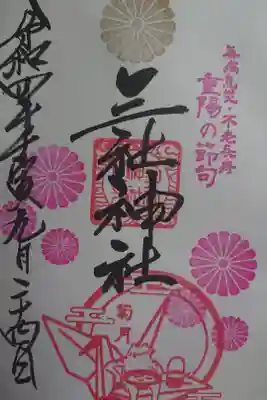 無病息災・不老長寿
重陽の節句
三社神社
令和四年壬寅九月二十四日
菊月